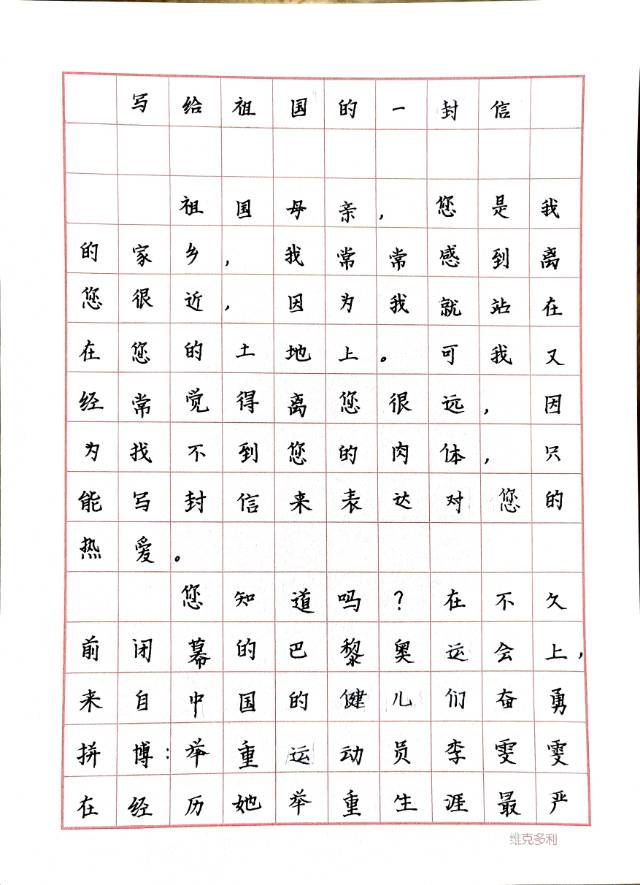 写给祖国的一封信
祖国母亲，您是我
的家乡，我常常感到离
您很近，因为我就站在
在您的土地上。可我又
经常觉得离您很远，因
为找不到您的肉体，只
能写封信来表达对您的
热爱。
您知道吗？在不久
前闭幕的巴黎奥运会上，
来自中国的健儿们奋勇
拼博：举重运动员李雯雯
在经历她举重生涯最严
维克多利